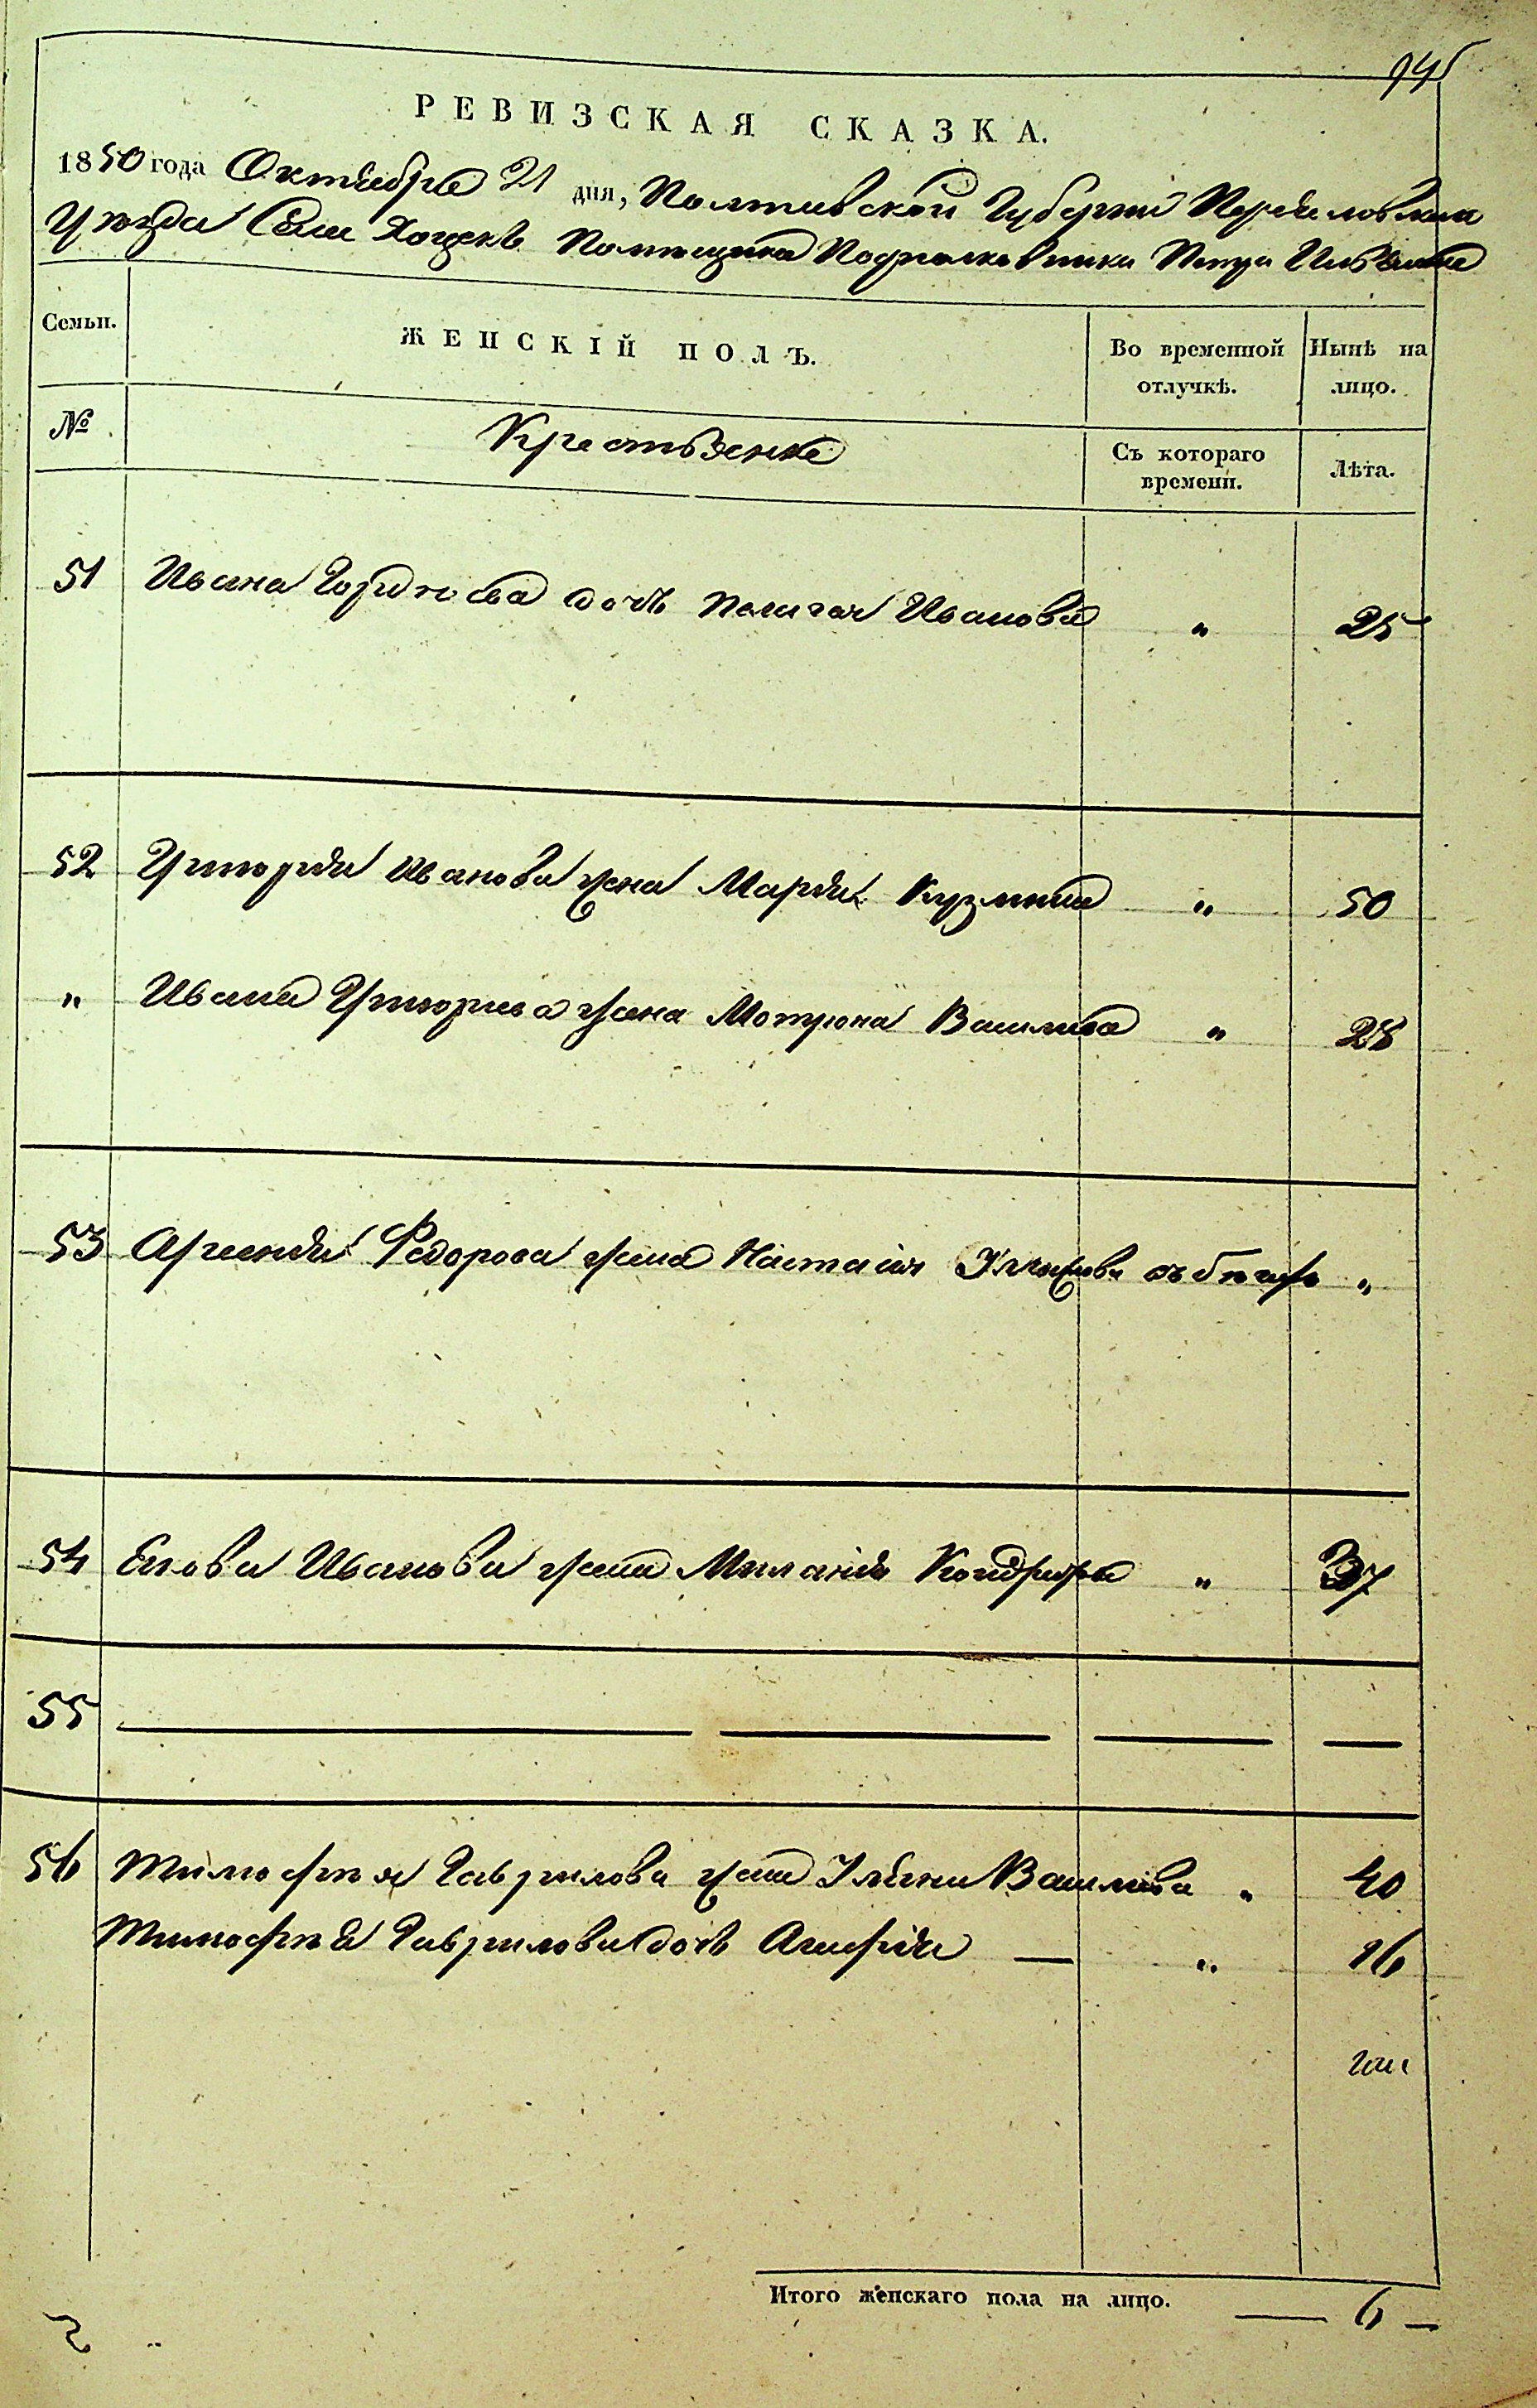 РЕВИЗСКАЯ СКАЗКА.
1850 года Октября 21 дня, Полтавской Губернии
Уезда Села Хоцекъ Помѣщика Подполковника Петра
Семьи. ЖЕНСКІЙ ПОЛЪ. Во временной отлучкѣ. Нынѣ на лицо.
№ Крестьянке Съ котораго времени. Лѣта.
51 Ивана Гордѣева дочь Пелагея Иванова " 25
52 Григория Иванова жена Мария Кузмина " 50
" Ивана Григорьева жена Мотрона Василева " 28
53 Федорова жена Настасия въ бегах "
54 Иванова жена Милания " 37
55 — — — —
56 Тимофея Гаврилова жена Василева " 40
Тимофея Гаврилова дочь Агафия — " 16
Итого женскаго пола на лицо. — 6 —